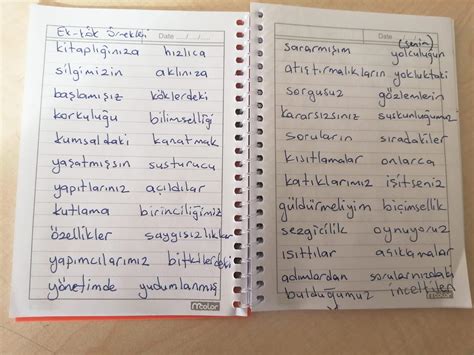 Ek-kök Örnekleri
Date / /
kitaplığınıza hızlıca
silgimizin aklınıza
başlamışız köklerdeki
korkuluğu bilimselliği
kumsaldaki kanatmak
yaşatmışsın susturucu
yapıtlarınız açıldılar
kutlama birinciliğimiz
özellikler saygısızlıklar
yapımcılarımız bitkilerdeki
yönetimde yudumlanmış
mcolor
Date
(senin)
sararmışım yolculuğun
atıştırmalıkların yokluktaki
sorgusuz gözlemlerin
kararsızsınız suskunluğumuz
soruların sıradakiler
kısıtlamalar onlarca
katıklarımız işitseniz
güldürmeliyim biçimsellik
sezgicilik oynuyoruz
ısıttılar açıklamalar
adımlardan sorularınızdaki
bulduğumuz inceltilen
mcolor